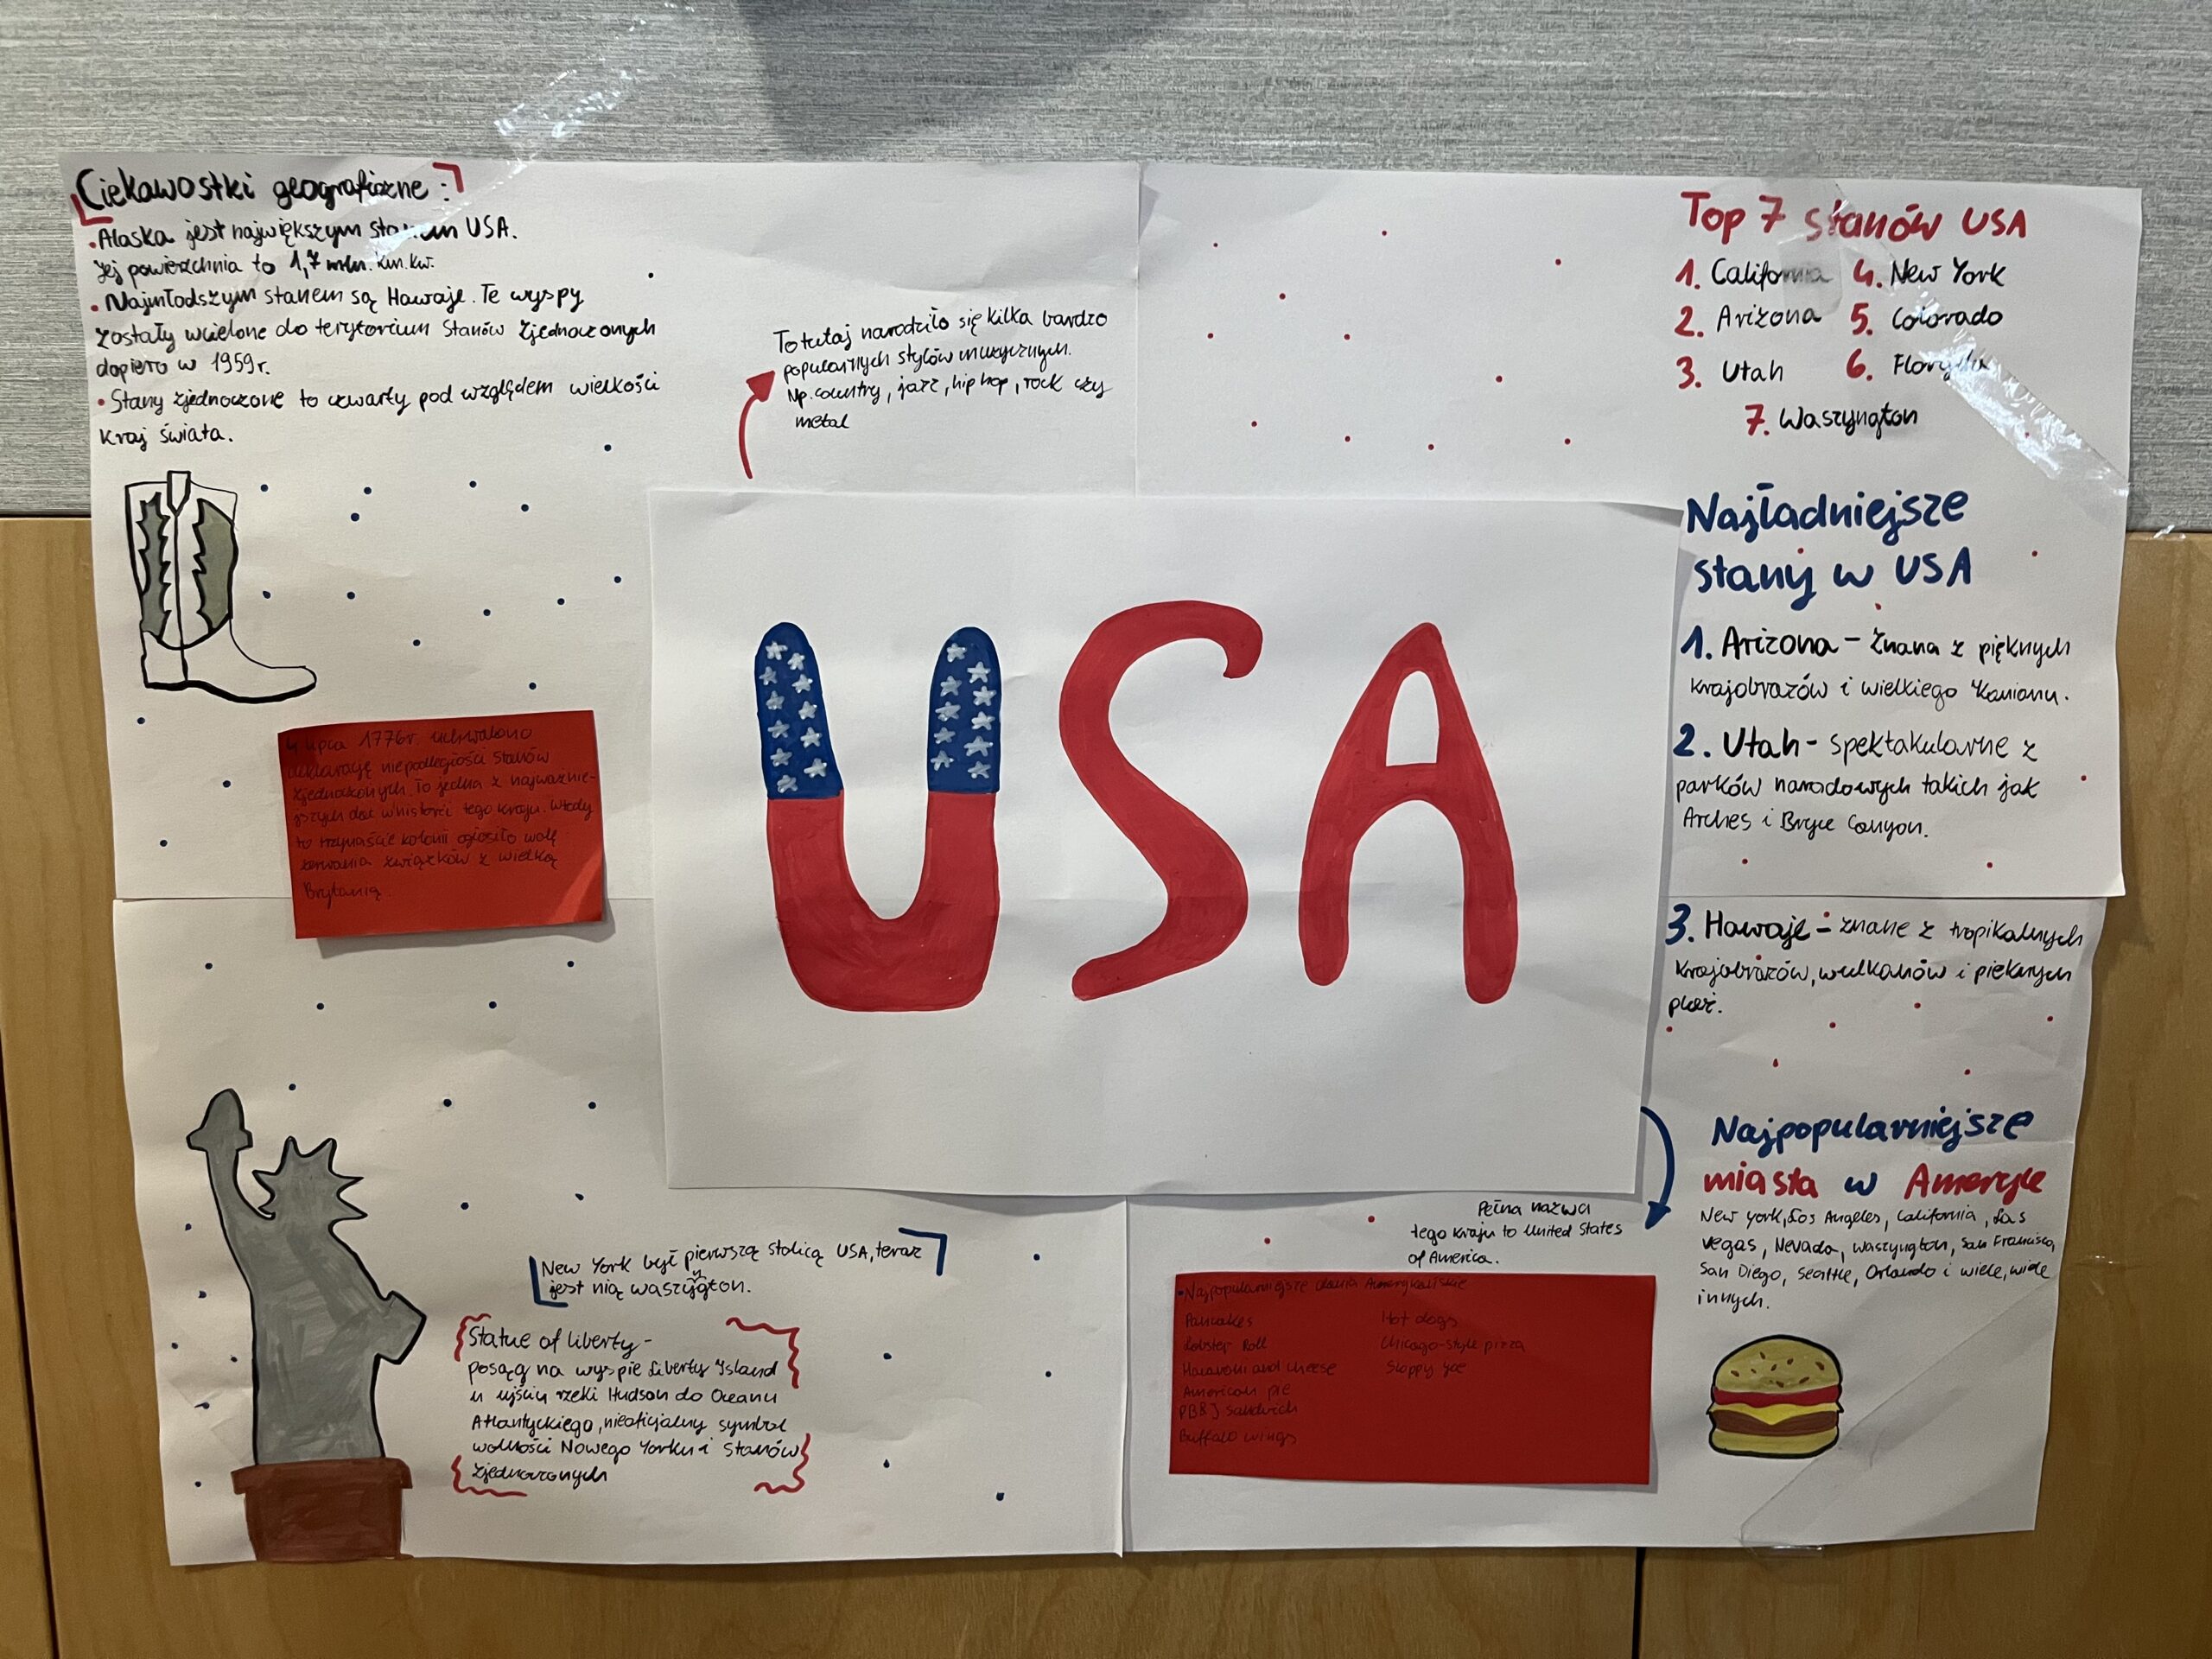 Ciekawostki geograficzne:
• Alaska jest największym stanem USA.
Jej powierzchnia to 1,7 mln. km. kw.
• Najmłodszym stanem są Hawaje. Te wyspy
zostały wcielone do terytorium Stanów Zjednoczonych
dopiero w 1959r.
• Stany Zjednoczone to czwarty pod względem wielkości
kraj świata.
To tutaj narodziło się kilka bardzo
popularnych stylów muzycznych.
Np. country, jazz, hip hop, rock czy
metal
Top 7 stanów USA
1. California 4. New York
2. Arizona 5. Colorado
3. Utah 6. Floryda
7. Waszyngton
Najładniejsze
stany w USA
1. Arizona - znana z pięknych
krajobrazów i wielkiego Kanionu.
2. Utah - spektakularne z
parków narodowych takich jak
Arches i Bryce Canyon.
3. Hawaje - znane z tropikalnych
krajobrazów, wulkanów i pięknych
plaż.
USA
4 lipca 1776r. uchwalono
deklarację niepodległości Stanów
Zjednoczonych. To jedna z najważnie-
jszych dat w historii tego kraju. Wtedy
to trzynaście kolonii ogłosiło wolę
zerwania związków z Wielką
Brytanią
New York był pierwszą stolicą USA, teraz
jest nią waszyngton.
Statue of liberty -
posąg na wyspie Liberty Island
u ujściu rzeki Hudson do Oceanu
Atlantyckiego, nieoficjalny symbol
wolności Nowego Yorku i Stanów
Zjednoczonych
Pełna nazwa
tego kraju to United States
of America.
• Najpopularniejsze dania Amerykańskie
Pancakes Hot dogs
Lobster Roll Chicago-style pizza
Macaroni and cheese Sloppy Joe
American pie
PB&J sandwich
Buffalo wings
Najpopularniejsze
miasta w Ameryce
New York, Los Angeles, California, Las
Vegas, Nevada, Waszyngton, San Francisco,
San Diego, Seattle, Orlando i wiele, wiele
innych.